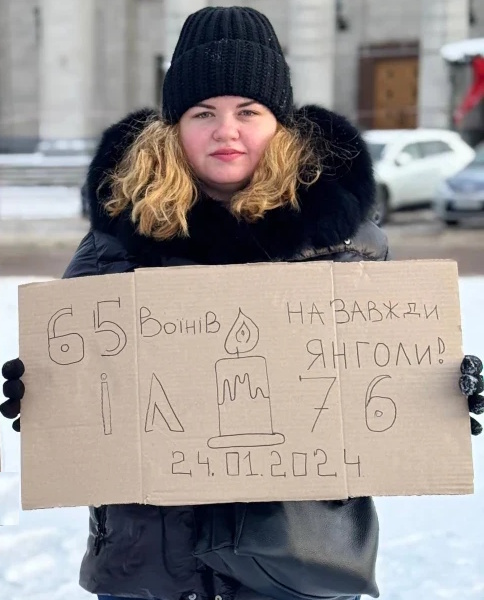 65 Воїнів НАЗАВЖДИ
ЯНГОЛИ!
іЛ 76
24.01.2024